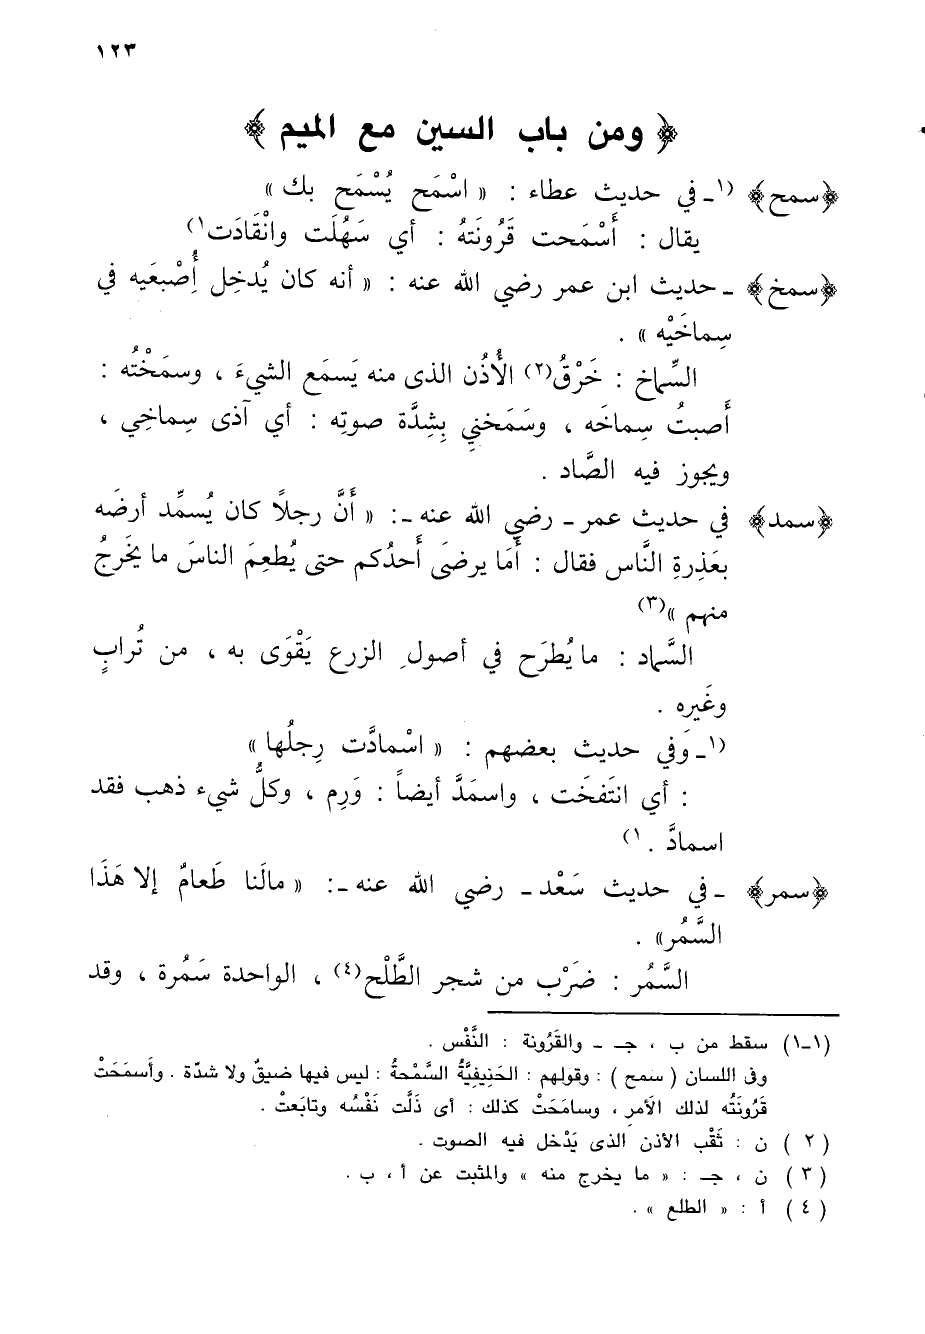 ١٢٣
﴿ ومن باب السين مع الميم ﴾
﴿سمح﴾ (١ـ في حديث عطاء : « اسْمَح يُسْمَح بك »
يقال : أَسْمَحت قَرُونَتهُ : أي سَهُلَت وانْقَادَت١)
﴿سمخ﴾ ـ حديث ابن عمر رضي الله عنه : « أنه كان يُدخِل أُصْبعَيه في
سِماخَيْه » .
السِّماخ : خَرْقُ(٢) الأُذُن الذى منه يَسمَع الشيءَ ، وسمَخْتُه :
أَصبتُ سِماخَه ، وسَمَخنيِ بِشِدَّة صوتِه : أي آذى سِماخِي ،
ويجوز فيه الصَّاد .
﴿سمد﴾ في حديث عمر ـ رضي الله عنه ـ: « أنَّ رجلاً كان يُسمِّد أرضَه
بعَذِرةِ النَّاس فقال : أَمَا يرضَى أَحدُكم حتى يُطعِمَ الناسَ ما يَخَرجُ
منهم »(٣)
السَّماد : ما يُطرَح في أصول الزرع يَقْوَى به ، من تُرابٍ
وغَيره .
(١ـ وفي حديث بعضهم : « اسْمادَّت رِجلُها »
: أي انتَفخَت ، واسمَدَّ أيضاً : وَرِم ، وكلُّ شيء ذهب فقد
اسمادَّ . ١)
﴿سمر﴾ ـ في حديث سَعْد ـ رضي الله عنه ـ: « مالَنا طَعامٌ إلا هَذَا
السَّمُر» .
السَّمُر : ضَرْب من شجر الطَّلْح(٤) ، الواحدة سَمُرة ، وقد
(١ـ١) سقط من ب ، جـ ـ والقَرُونة : النَّفْس .
وفى اللسان ( سمح ) : وقولهم : الحَنِيفِيَّةُ السَّمْحةُ : ليس فيها ضيقٌ ولا شدّة . وأَسمَحَتْ
قَرُونَتُه لذلك الأمرِ ، وسامَحَتْ كذلك : أى ذَلَّت نَفْسُه وتابَعتْ .
( ٢ ) ن : ثَقْب الأذن الذى يَدْخل فيه الصوت .
( ٣ ) ن ، جـ : « ما يخرج منه » والمثبت عن أ ، ب .
( ٤ ) أ : « الطلع » .